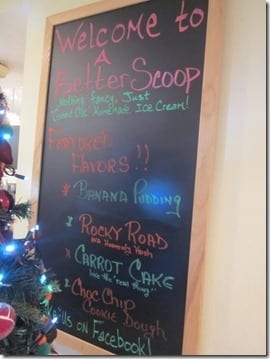 Welcome to
A
Better Scoop
Nothing Fancy, Just
"Good Ole" Homemade Ice Cream!
Featured
Flavors!!
* Banana Pudding
* Rocky Road
aka Heavenly Hash
* Carrot Cake
like the "real thing"
* Choc Chip
Cookie Dough
Us on Facebook!